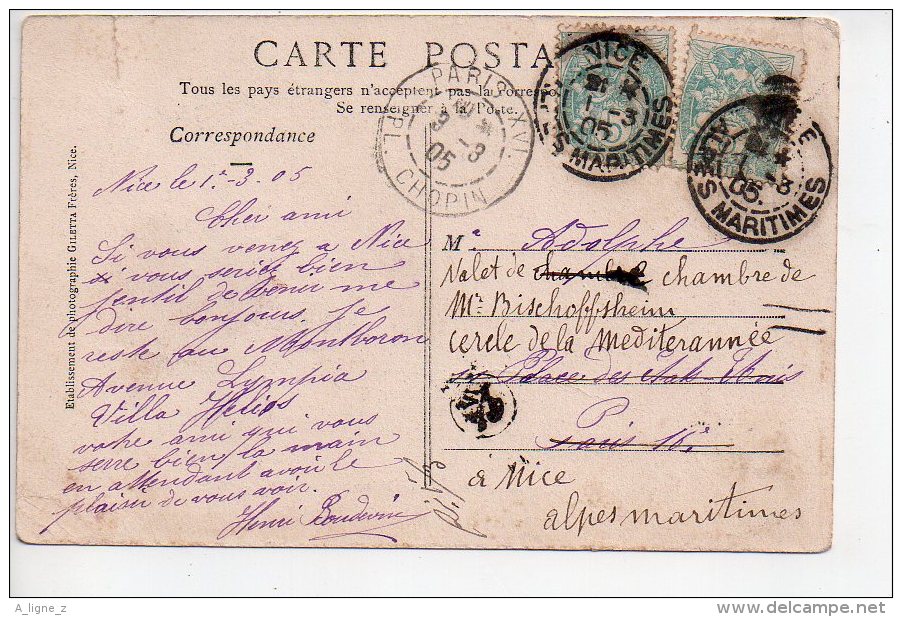 CARTE POSTA
Tous les pays étrangers n'acceptent pas la correspo
Se renseigner à la Poste.
Correspondance
Nice le 1er-3.05
Cher ami
Si vous venez a Nice
si vous seriez bien
gentil de venir me
dire bonjour. Je
reste au Montboron
Avenue Lympia
Villa Hélios
votre ami qui vous
serre bien la main
en attendant avoir le
plaisir de vous voir.
Henri
Etablissement de photographie GILETTA Frères, Nice.
PARIS XVI
3 05
PL. CHOPIN
NICE
1 -3
05
ALPES MARITIMES
NICE
-3
05
ALPES MARITIMES
Mr Adolphe
Valet de chambre chambre de
Mr. Bischoffsheim
cercle de la Mediterannée
Place des Etats Unis
Paris 16e
à Nice
alpes maritimes
A_ligne_z
http://www.delcampe.net